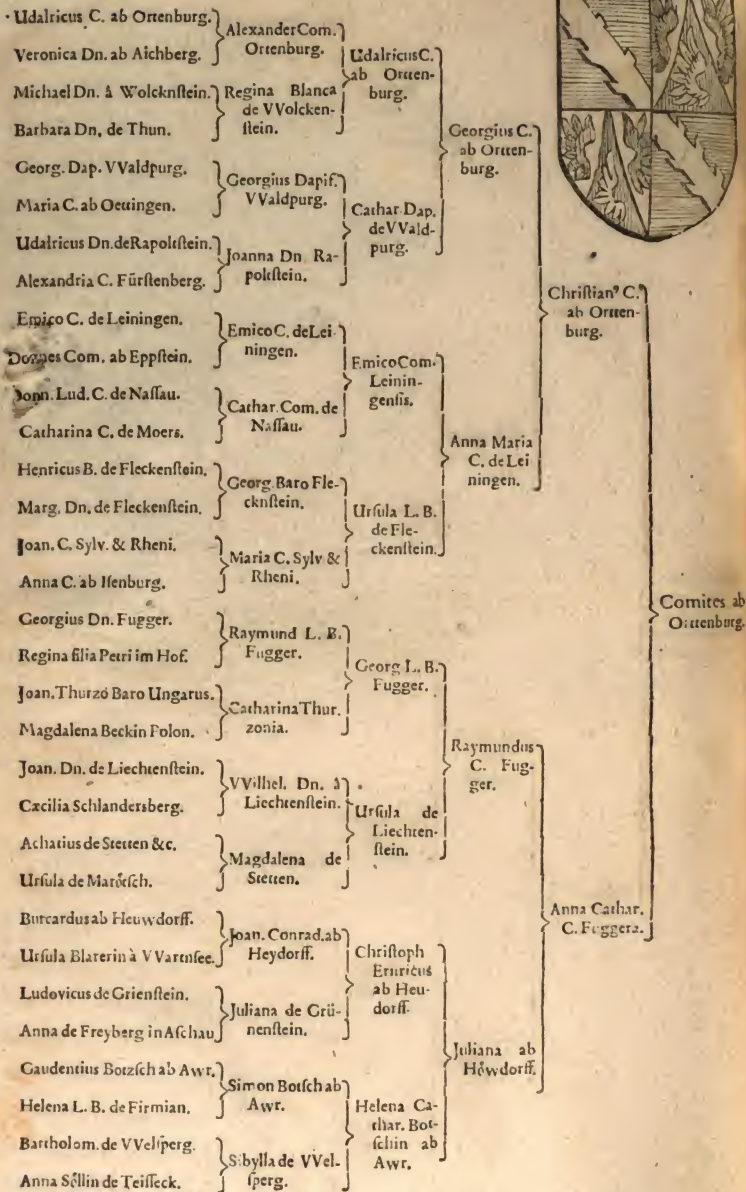 Udalricus C. ab Ortenburg.
Veronica Dn. ab Aichberg.
Michael Dn. à Wolcknſtein.
Barbara Dn. de Thun.
Georg. Dap. VValdpurg.
Maria C. ab Oettingen.
Udalricus Dn. de Rapoltſtein.
Alexandria C. Fürſtenberg.
Emico C. de Leiningen.
Com. ab Eppſtein.
Lud. C. de Naſſau.
Catharina C. de Moers.
Henricus B. de Fleckenſtein.
Marg. Dn. de Fleckenſtein.
Joan. C. Sylv. & Rheni.
Anna C. ab Iſenburg.
Georgius Dn. Fugger.
Regina filia Petri im Hof.
Joan. Thurzó Baro Ungarus.
Magdalena Beckin Polon.
Joan. Dn. de Liechtenſtein.
Cæcilia Schlandersberg.
Achatius de Stetten &c.
Urſula de
Burcardus ab Heuwdorff.
Urſula Blarerin à VVartnſee.
Ludovicus de Grienſtein.
Anna de Freyberg in Aſchau
Gaudentius Botzſch ab Awr.
Helena L. B. de Firmian.
Bartholom. de VVelſperg.
Anna Söllin de Teiſſeck.
Alexander Com.
Ortenburg.
Regina Blanca
de VVolcken-
ſtein.
Georgius Dapif.
VValdpurg.
Joanna Dn. Ra-
poltſtein.
Emico C. de Lei-
ningen.
Cathar. Com. de
Naſſau.
Georg. Baro Fle-
cknſtein.
Maria C. Sylv &
Rheni.
Raymund L. B.
Fugger.
Catharina Thur.
zonia.
VVilhel. Dn. à
Liechtenſtein.
Magdalena de
Stetten.
Joan. Conrad. ab
Heydorff.
Juliana de Grü-
nenſtein.
Simon Botſch ab
Awr.
Sibylla de VVel-
ſperg.
Udalricus C.
ab Orten-
burg.
Cathar. Dap.
de VVald-
purg.
Emico Com.
Leinin-
genſis.
Urſula L. B.
de Fle-
ckenſtein.
Georg L. B.
Fugger.
Urſula de
Liechten-
ſtein.
Chriſtoph
ab Heu-
dorff.
Helena Ca-
thar. Bot-
ſchin ab
Awr.
Georgius C.
ab Orten-
burg.
Anna Maria
C. de Lei
ningen.
Raymundus
C. Fug-
ger.
Juliana ab
Höwdorff.
Chriſtianꝰ C.
ab Orten-
burg.
Anna Cathar.
C. Fuggera.
Comites ab
Ortenburg.